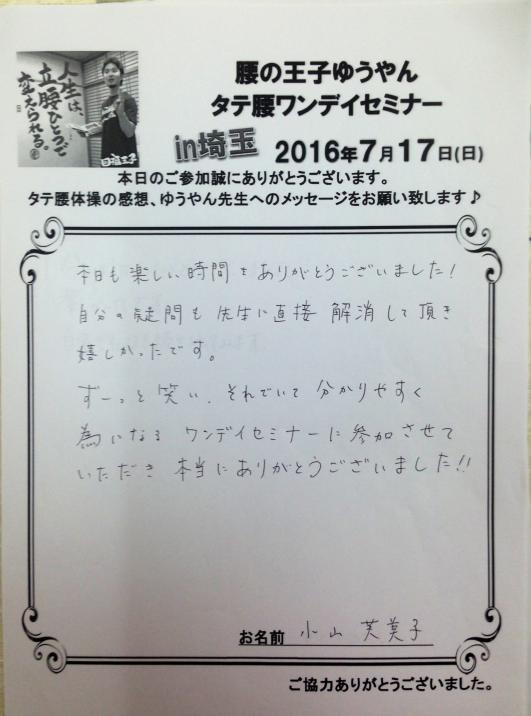 人生は、
立腰ひとつで
変えられる。
腰の王子ゆうやん
タテ腰ワンデイセミナー
in埼玉 2016年7月17日(日)
本日のご参加誠にありがとうございます。
タテ腰体操の感想、ゆうやん先生へのメッセージをお願い致します♪
本日も楽しい時間をありがとうございました!
自分の疑問も先生に直接解消して頂き
嬉しかったです。
ずーっと笑い、それでいて分かりやすく
為になるワンデイセミナーに参加させて
いただき本当にありがとうございました!!
お名前 小山 芙美子
ご協力ありがとうございました。